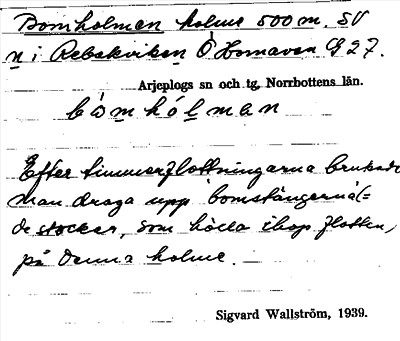 Bomholmen holme 500 m. SV
n i Rebakviken Ö Hornavan G 27.
Arjeplogs sn och tg, Norrbottens län.
bòmhólman
Efter timmerflottningarna brukade
man draga upp bomstängerna (=
de stockar, som hålla ihop flotten)
på denna holme.
Sigvard Wallström, 1939.